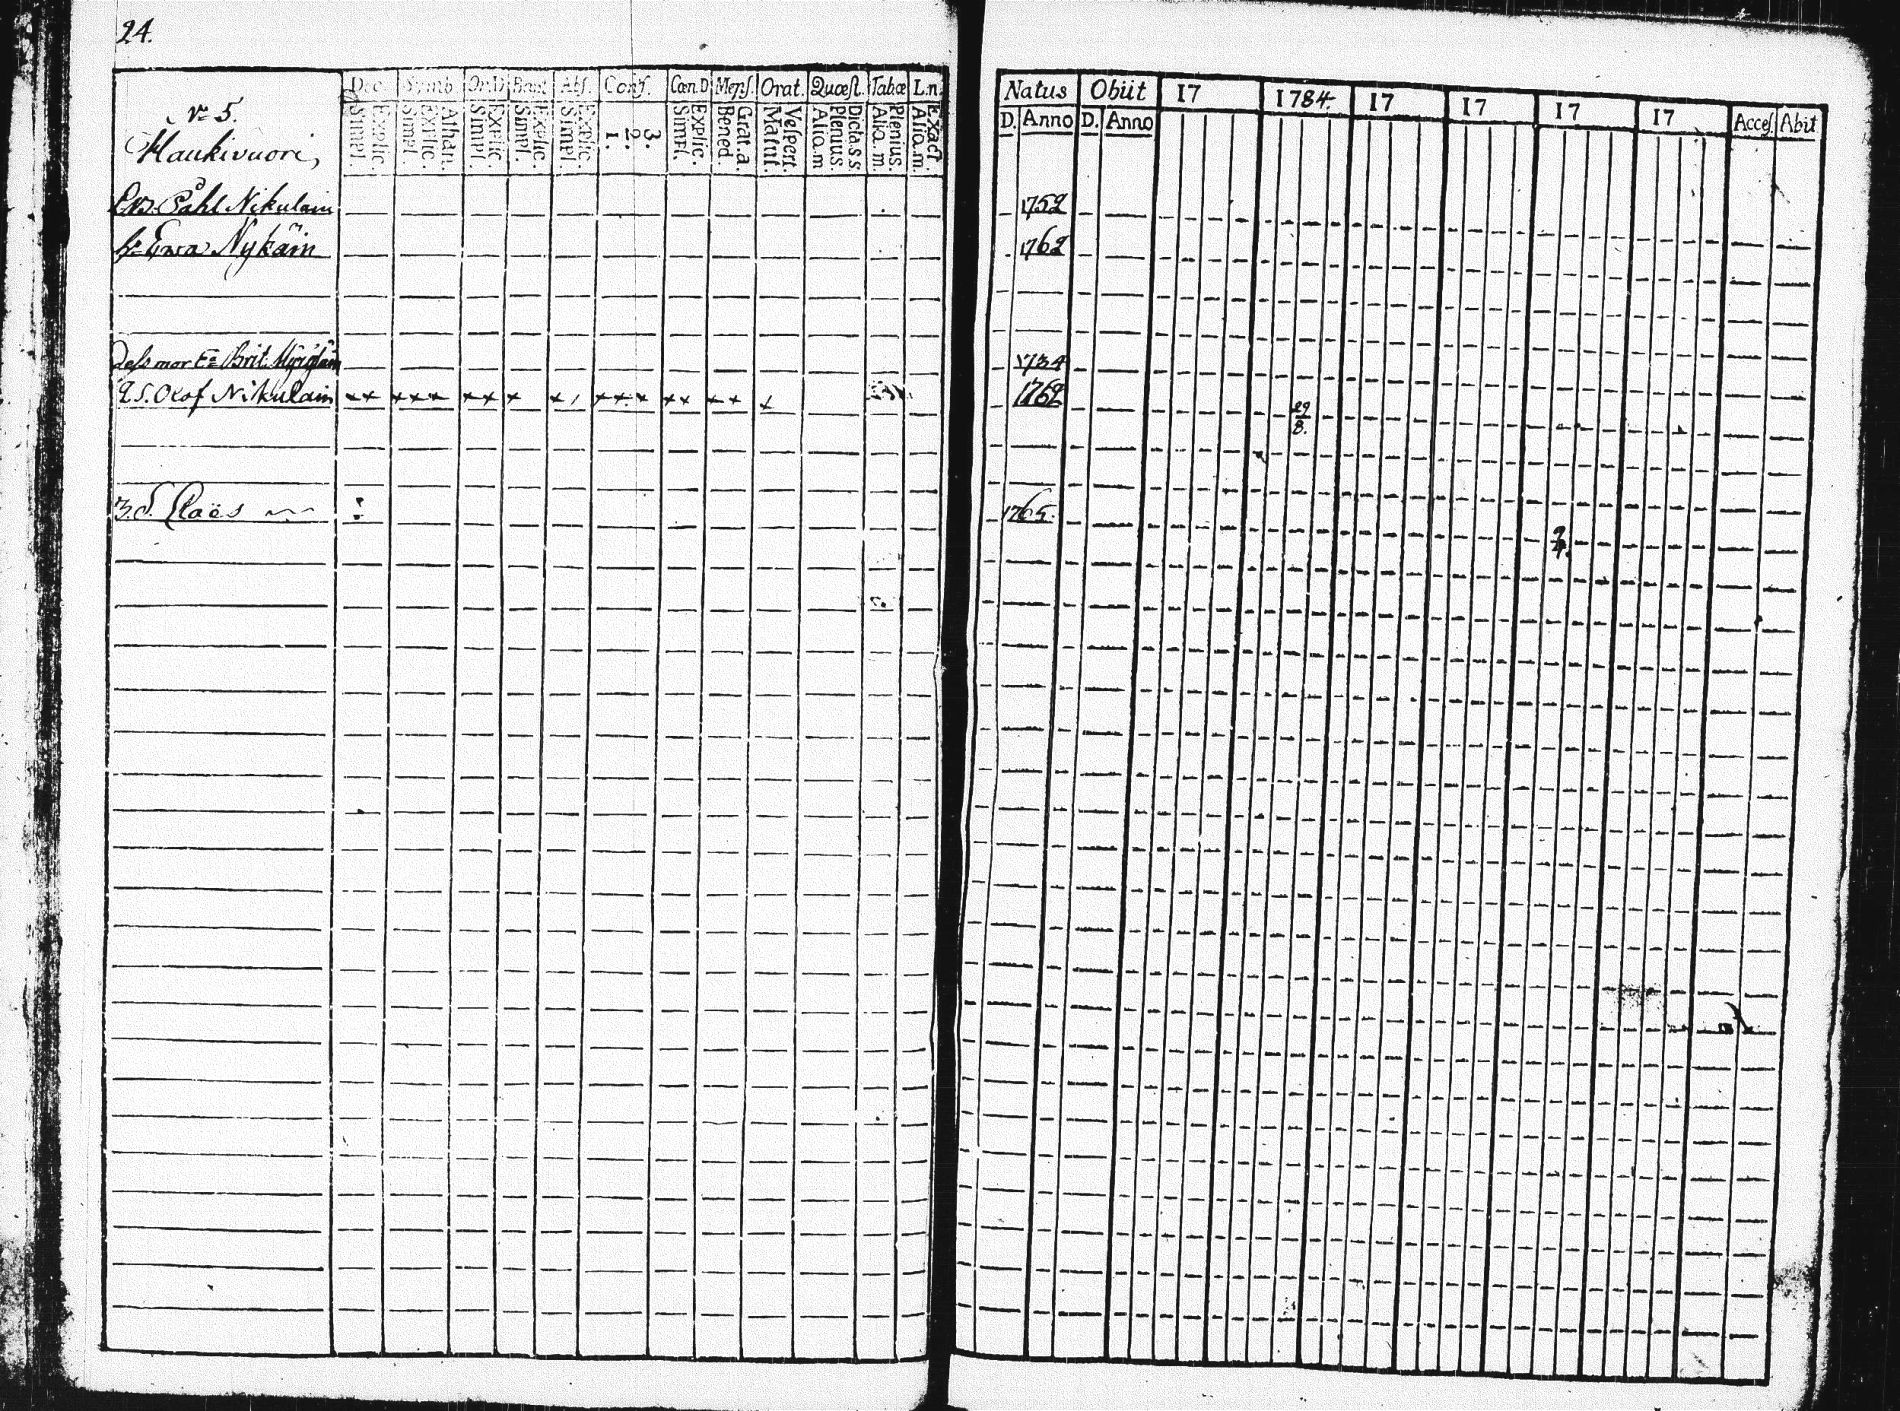 24.
Dec. Symb. Or.D Bapt Abs. Conf. Cœn D Mens. Orat. Quæst. Tabæ L.n.
Simpl. Explic. Simpl. Explic. Athan. Simpl. Explic. Simpl. Explic. Simpl. Explic. 1. 2. 3. Simpl. Explic. Bened. Grat. a. Matut. Vespert. Alio.m Plenius. Dicta.s.s Alia.m. Plenius. Alio.m. Exact
No 5.
Haukivuori,
Påhl Nikulain
hu Ewa Nykäin
dess mor Brit.
2.S. Olof Nikulain ++ +++ ++ + + +++ ++ ++ +
3.S. Claës
Natus Obiit 17 1784. 17 17 17 17 Acces. Abit
D. Anno D. Anno
1752
1762
1734
1762 29/8.
1765.